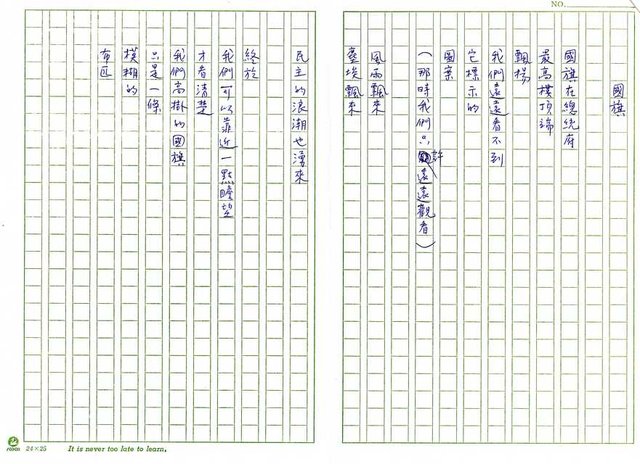 NO.
國旗
國旗在總統府
最高樓頂端
飄揚
我們遠遠看不到
它標示的
圖案
(那時我們只許遠遠觀看)
風雨飄來
塵埃飄來
民主的浪潮也湧來
終於
我們可以靠近一點瞻望
才看清楚
我們高掛的國旗
只是一條
模糊的
布匹
24×25 It is never too late to learn.